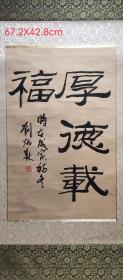 67.2X42.8cm
厚德載
福
時在戊寅初冬
劉炳森